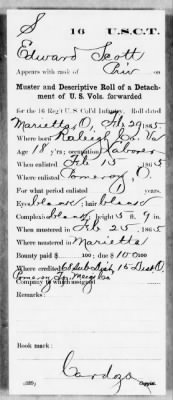 S 16 U.S.C.T.
Edward Scott
Appears with rank of Priv on
Muster and Descriptive Roll of a Detach-
ment of U. S. Vols. forwarded
for the 16 Reg't U. S. Col'd Infantry. Roll dated
Marietta, O, Feb 27 1865.
Where born Raleigh Co. Va
Age 18 y'rs; occupation Laborer
When enlisted Feb 15 1865
Where enlisted Pomeroy, O.
For what period enlisted years.
Eyes black; hair black
Complexion black; height 5 ft. 9 in.
When mustered in Feb 25, 1865
Where mustered in Marietta
Bounty paid $ 100; due $ 100
Where credited Sub Dist, 15 Dist O.
Pomeroy Meigs Co
Company to which assigned
Remarks:
Book mark:
Cardoza
(339) Copyist.